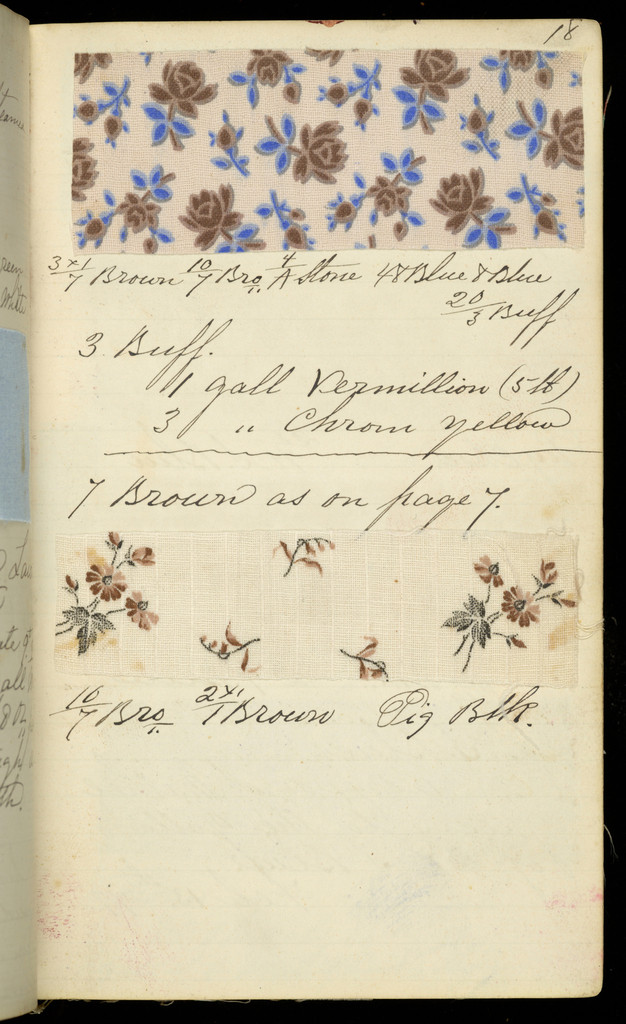 18
3x1/7 Brown 10/7 Bro 4/A Stone 48 Blue & Blue
20/3 Buff
3 Buff.
1 gall Vermillion (5 lb)
3 " Chrom yellow
7 Brown as on page 7.
10/7 Bro 2x1/1 Brown Pig Blk.